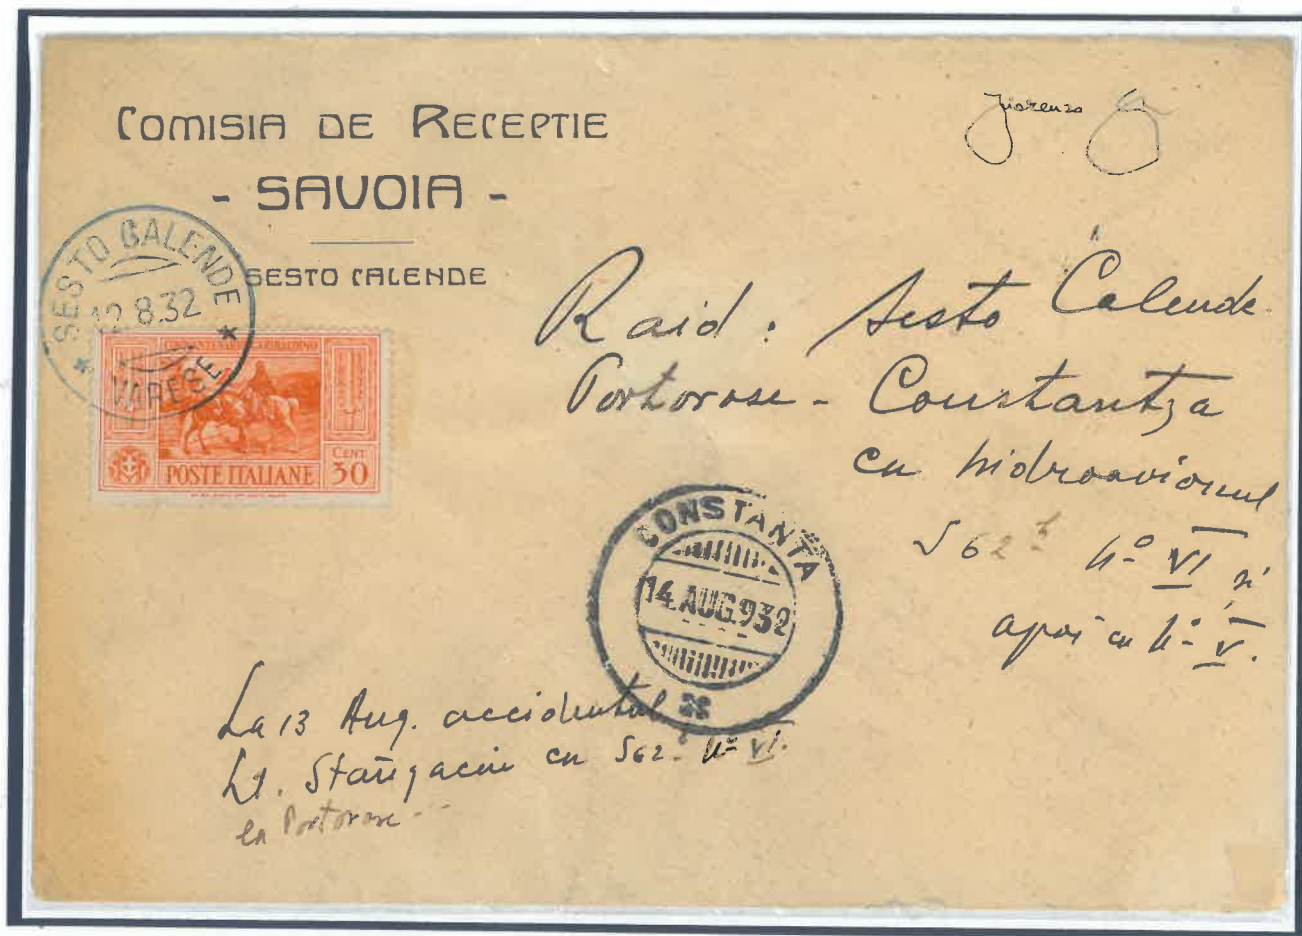 COMISIA DE RECEPTIE
- SAVOIA -
SESTO CALENDE
SESTO CALENDE
12.8.32
VARESE
CINQUANTENARIO GARIBALDINO
POSTE ITALIANE
CENT 30
Fiorenzo
Raid: Sesto Calende
Portorose - Constantza
cu hidroavionul
S 62 b No VI si
apoi cu No V.
CONSTANȚA
14.AUG.932
La 13 Aug. accidentul
Lt. Stângaciu cu S62 b No VI.
la Portorose.